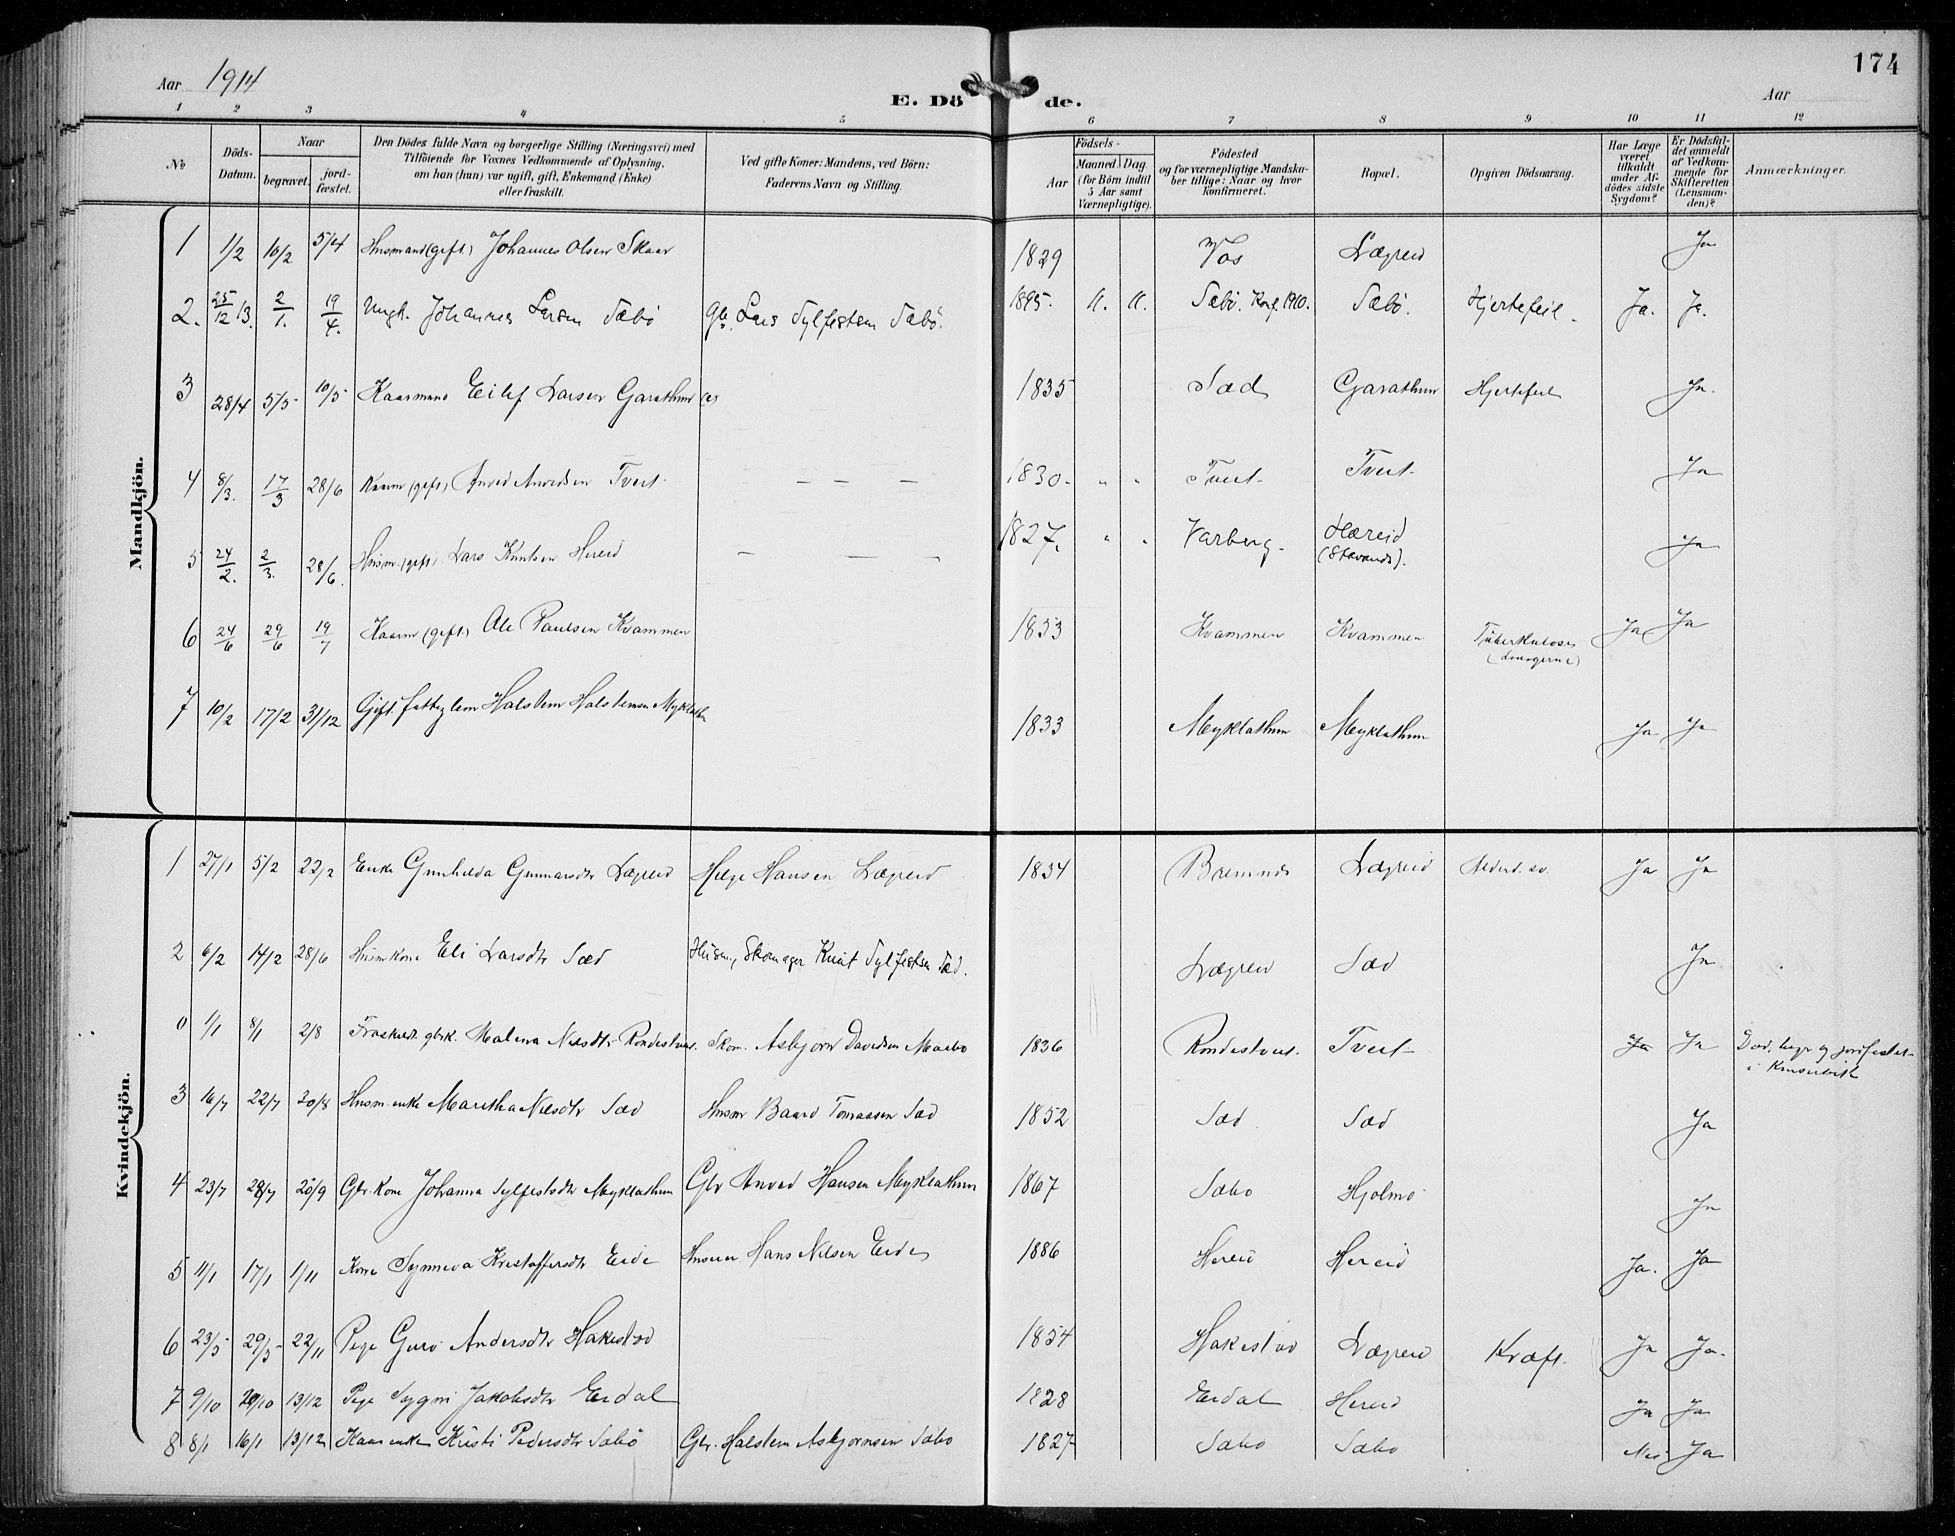 174
Aar 1914
E. Dö de.
Aar
1 2 3 4 5 6 7 8 9 10 11 12
No
Döds-Datum.
Naar
begravet.
jord-fæstet.
Den Dödes fulde Navn og borgerlige Stilling (Næringsvei) med
Tilföiende for Voxnes Vedkommende af Oplysning,
om han (hun) var ugift, gift, Enkemand (Enke)
eller fraskilt.
Ved gifte Koner: Mandens, ved Börn:
Faderens Navn og Stilling.
Födsels-
Aar
Maaned Dag
(for Börn indtil
5 Aar samt
Værnepligtige).
Födested
og for værnepligtige Mandska-
ber tillige: Naar og hvor
konfirmeret.
Bopæl.
Opgiven Dödsaarsag.
Har Læge
været
tilkaldt
under Af-
dödes sidste
Sygdom?
Er Dødsfal-
det anmeldt
af Vedkom-
mende for
Skifteretten
(Lensman-
den)?
Anmærkninger.
Mandkjön.
1 1/2 10/2 5/4 Husmand (gift) Johannes Olsen Skaar 1829 Vos Lægreid Ja
2. 25/12 13. 2/1. 19/4. Ungk. Johannes Larsen Sæbö Gb. Lars Sylfestsen Sæbö. 1895. 11. 11. Sæbö. Konf. 1910. Sæbö. Hjertefeil. Ja. Ja.
3 28/4 5/5 10/5 Kaarmand Eilef Larsen Garathun 1835 Sæd Garathun Hjertefeil Ja.
4 8/3. 17/3 28/6 Kaarm (gift) Anved Anvedsen Tveit — — — 1830. " " Tveit Tveit Ja
5 24/2. 2/3. 28/6. Husm. (gift) Lars Knutsen Hereid — — — 1827. " " Varberg. Hæreid Ja
6 24/6 29/6 19/7 Kaarm (gift) Ole Paulsen Kvammen 1853 Kvammen Kvammen Tuberkulose Ja Ja
(Lungerne)
7 10/2 17/2 31/12 Gift. fattiglem Halsten Halstensen Myklathun 1833 Myklathun Myklathun Ja Ja
Kvindekjön.
1 27/1 5/2 22/2 Enke Gunhilda Gunnarsdtr Lægreid Helge Hansen Lægreid 1834 Lægreid Ja Ja
2 6/2 14/2 28/6 Husmkone Eli Larsdtr Sæd Husm., Skomager Knut Sylfestsen Sæd. Lægreid Sæd Ja
0 1/1 8/1 2/8 Fraskilt gbrk. Malena Nilsdtr Rondestveit. Skom. Asbjorn Davidsen Maebo 1836 Rondestveit. Tveit Ja Ja Död, begr og jordfæstet
i Kinservik
3 16/7 22/7 20/8 Husm. enke Maritha Nilsdtr Sæd Husm Baard Tomassen Sæd 1852 Sæd Sæd Ja
4 23/7 29/7 20/9 Gbr. Kone Johanna Sylfestsdtr Myklathun Gbr Anved Hansen Myklathun 1867 Sæbo Hjolmo Ja
5 11/1 17/1 1/11 Kone Synneva Kristoffersdtr Eide Husm Hans Nilsen Eide 1886 Hereid Hereid Ja. Ja
6 23/5 29/5 22/11 Pige Guro Andersdtr Hakestad 1854 Hakestad Lægreid Kræft. Ja Ja.
7 9/10 20/10 13/12 Pige Sygni Jakobsdtr Eidal 1828 Eidal Hereid Ja Ja
8 8/1 16/1 13/12 Kaarenke Kristi Pedersdtr Sæbö Gbr. Halsten Asbjornsen Sæbo 1827 Sæbo Sæbo Nei Ja